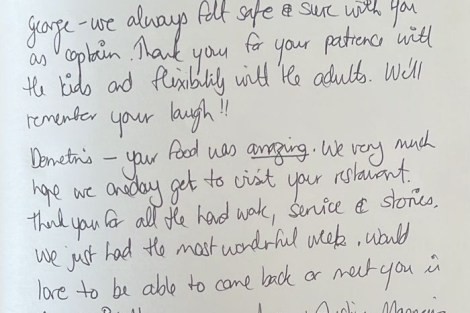 george - we always felt safe & sure with you
as captain. Thank you for your patience with
the kids and flexibility with the adults. We'll
remember your laugh!!
Demetris - your food was amazing. We very much
hope we oneday get to visit your restaurant.
Thank you for all the hard work, service & stories.
We just had the most wonderful week. Would
love to be able to come back or meet you in